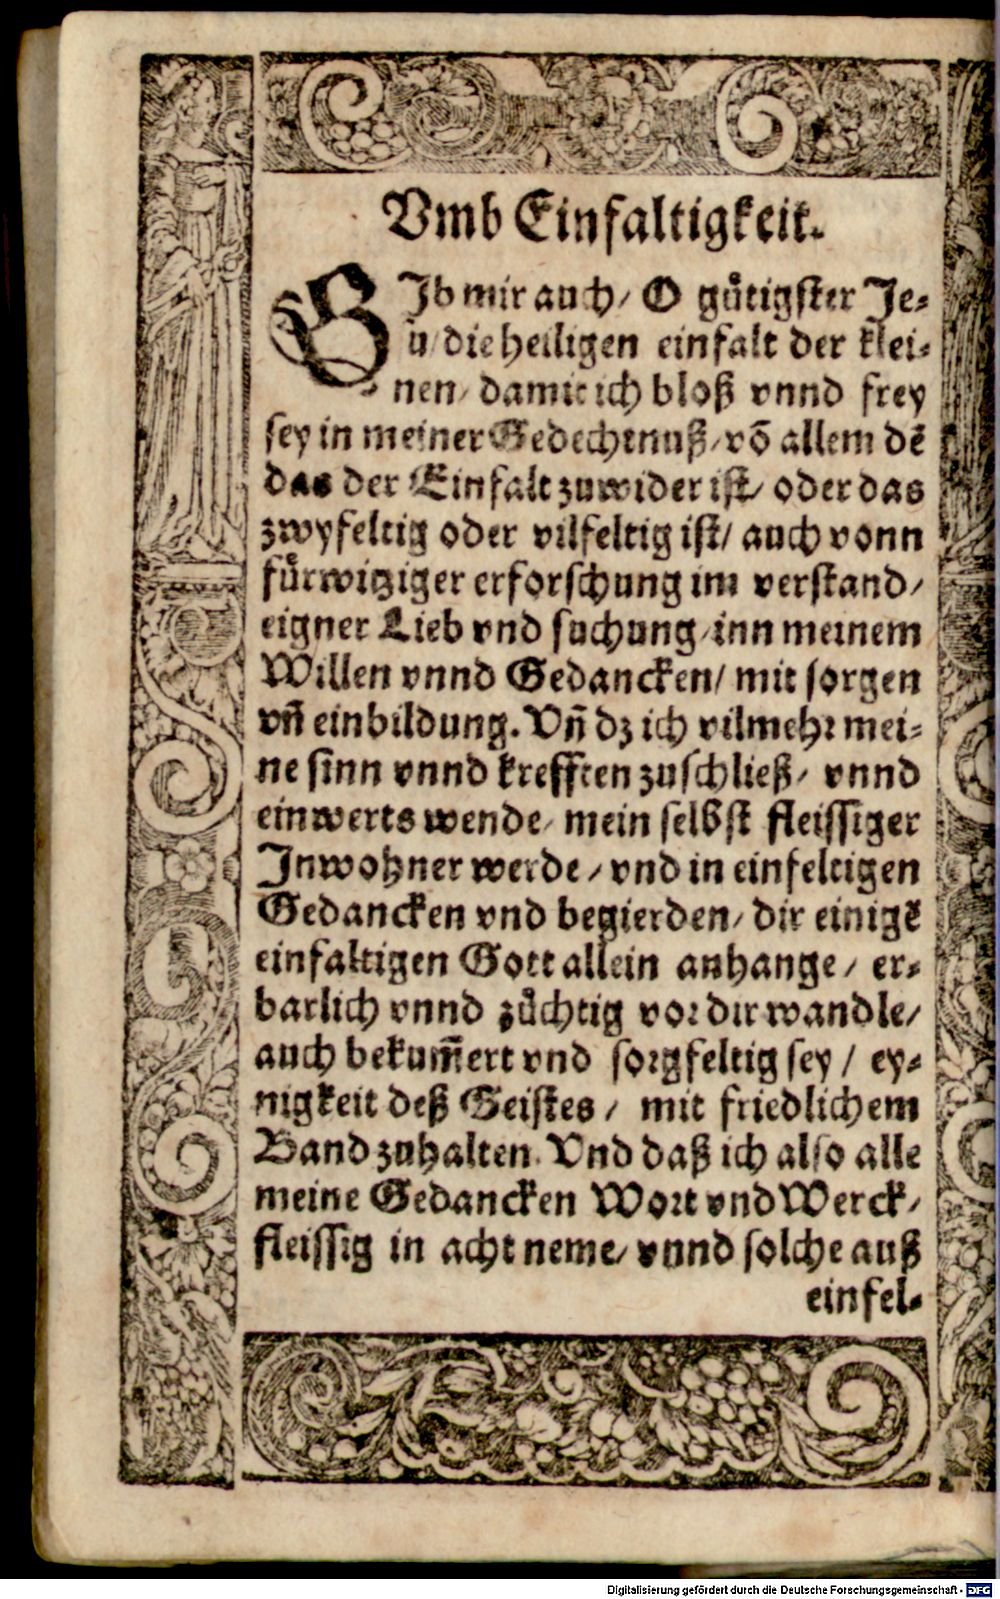 Vmb Einfaltigkeit.
GIb mir auch/ O gůtigster Je⸗
su/ die heiligen einfalt der klei⸗
nen/ damit ich bloß vnnd frey
sey in meiner Gedechtnuß/ võ allem dẽ
das der Einfalt zuwider ist/ oder das
zwyfeltig oder vilfeltig ist/ auch vonn
fürwitziger erforschung im verstand/
eigner Lieb vnd suchung/ inn meinem
Willen vnnd Gedancken/ mit sorgen
vñ einbildung. Vñ dz ich vilmehr mei⸗
ne sinn vnnd krefften zuschließ/ vnnd
einwerts wende/ mein selbst fleissiger
Inwohner werde/ vnd in einfeltigen
Gedancken vnd begierden/ dir einigẽ
einfaltigen Gott allein anhange/ er⸗
barlich vnnd züchtig vor dir wandle/
auch bekum̃ert vnd sorgfeltig sey/ ey⸗
nigkeit deß Geistes/ mit friedlichem
Band zuhalten. Vnd daß ich also alle
meine Gedancken Wort vnd Werck/
fleissig in acht neme/ vnnd solche auß
einfel⸗
Digitalisierung gefördert durch die Deutsche Forschungsgemeinschaft - DFG